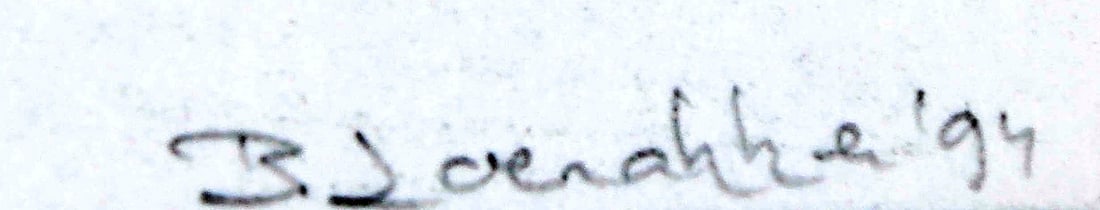 B. Loenakker '94